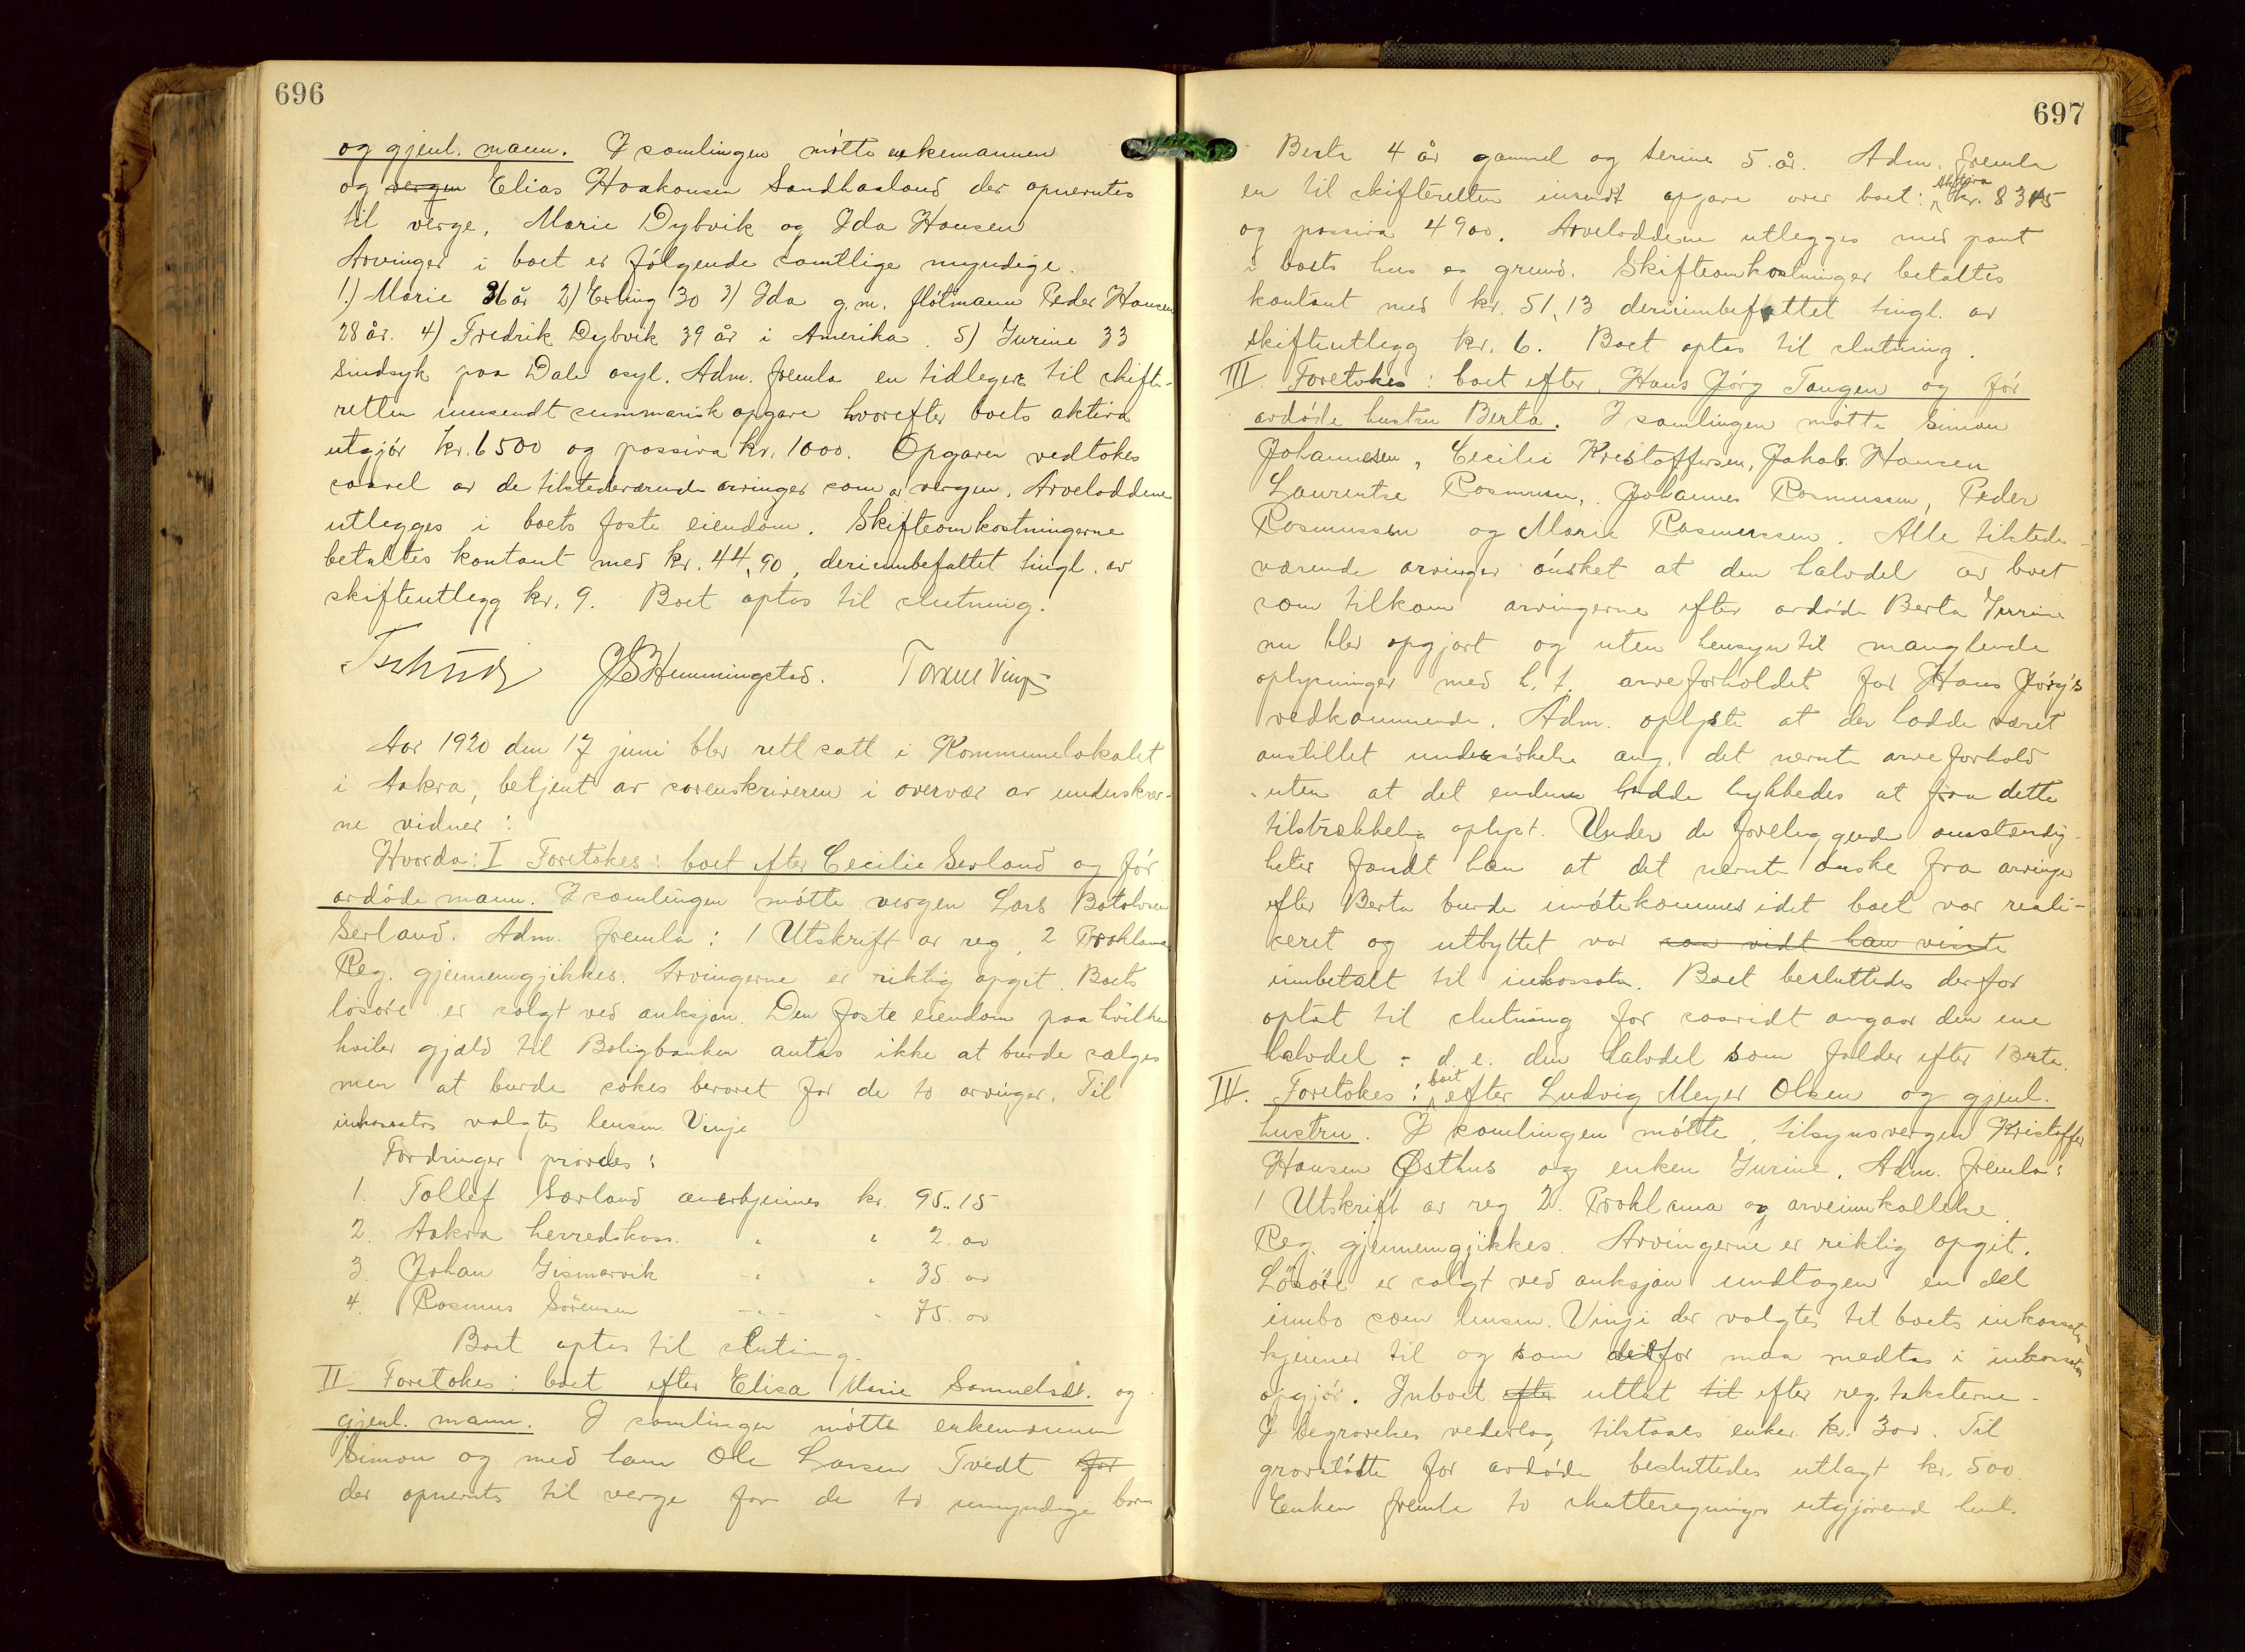 696
og gjenl. mann. I samlingen møtte enkemannen
og vergen Elias Haakonsen Sandhaaland der opnevntes
til verge, Marie Dybvik og Ida Hansen
Arvinger i boet er følgende samtlige myndige.
1.) Marie 36 år 2) Erling 30 3) Ida g.m. fløtmann Peder Hansen
28 år. 4) Fredrik Dybvik 39 år i Amerika. 5) Jurine 33
sindsyk paa Dale asyl. Adm. fremla en tidligere til skifte-
retten innsendt summarisk opgave hvorefter boets aktiva
utgjør kr. 6500 og passiva kr. 1000. Opgaven vedtokes
saavel av de tilstedeværende arvinger som av vergen. Arveloddene
utlegges i boets faste eiendom. Skifteomkostningerne
betaltes kontant med kr. 44,90, deriinnbefattet tingl. av
skifteutlegg kr. 9. Boet optas til slutning.
J.S. Hemmingstad.
Aar 1920 den 17 juni blev rett satt i Kommunelokalet
i Aakra, betjent av sorenskriveren i overvær av underskrev-
ne vidner:
Hvorda: I Foretokes: boet efter Cecilie Serland og før
avdøde mann. I samlingen møtte vergen Lars Botolvsen
Serland. Adm. fremla: 1 Utskrift av reg. 2 Proklama
Reg. gjennemgjikkes. Arvingerne er riktig opgit. Boets
løsøre er solgt ved auksjon. Den faste eiendom paa hvilken
hviler gjæld til Boligbanken antas ikke at burde sælges
men at burde søkes bevaret for de to arvinger. Til
inkassator valgtes lensm. Vinje
Fordringer prøvdes:
1. Tollef Sørland anerkjennes kr. 95.15
2. Aakra herredskass. " " 2.00
3. Johan Gismarvik " " 35.00
4. Rasmus Sørensen " " 75.00
Boet optas til slutning.
II Foretokes: boet efter Elisa Marie Samuelsdt. og
gjenl. mann. I samlingen møtte enkemannen
Simon og med ham Ole Larsen Tvedt for
der opnevntes til verge for de to umyndige barn
697
Berta 4 år gammel og Serine 5 år. Adm. fremla
en til skifteretten insendt opgave over boet: Aktiva kr. 8345
og passiva 4900. Arveloddene utlegges med pant
i boets hus og grund. Skifteomkostninger betaltes
kontant med kr. 51,13 deriinnbefattet tingl. av
skifteutlegg kr. 6. Boet optas til slutning.
III. Foretokes: boet efter Hans Jørg Tangen og før
avdøde hustru Berta. I samlingen møtte Simon
Johannesen, Cecilie Kristoffersen, Jakob Hansen
Laurentse Rasmussen, Johannes Rasmussen, Peder
Rasmussen og Marie Rasmussen. Alle tilstede-
værende arvinger ønsket at den halvdel av boet
som tilkom arvingerne efter avdøde Berta Serine
nu blev opgjort og uten hensyn til manglende
oplysninger med h. t. arveforholdet for Hans Jørg's
vedkommende. Adm. oplyste at der hadde været
anstillet undersøkelse ang. det nevnte arveforhold
uten at det endnu hadde lykkedes at faa dette
tilstrækkelig oplyst. Under de foreliggende omstændig-
heter fandt han at det nevnte ønske fra arvinger
efter Berta burde imøtekommes idet boet var reali-
seret og utbyttet var saa vidt han visste
innbetalt til inkassator. Boet besluttedes derfor
optat til slutning for saavidt angaar den ene
halvdel : d. e. den halvdel som falder efter Berta.
IV. Foretokes: boet efter Ludvig Meyer Olsen og gjenl.
hustru. I samlingen møtte, tilsynsvergen Kristoffer
Hansen Østhus og enken Jurine. Adm. fremla:
1 Utskrift av reg 2. Proklama og arveinnkallelse
Reg. gjennemgjikkes. Arvingerne er riktig opgit.
Løsøre er solgt ved auksjon undtagen en del
innbo som lensm. Vinje der valgtes til boets inkassator
kjenner til og som derfor maa medtas i inkassator
opgjør. Inboet efter uttat til efter reg. taksterne.
I begravelses vederlag tilstaaes enken kr. 300. Til
gravstøtte for avdøde besluttedes utlagt kr. 500.
Enken fremla to skatteregninger utgjørende hend.